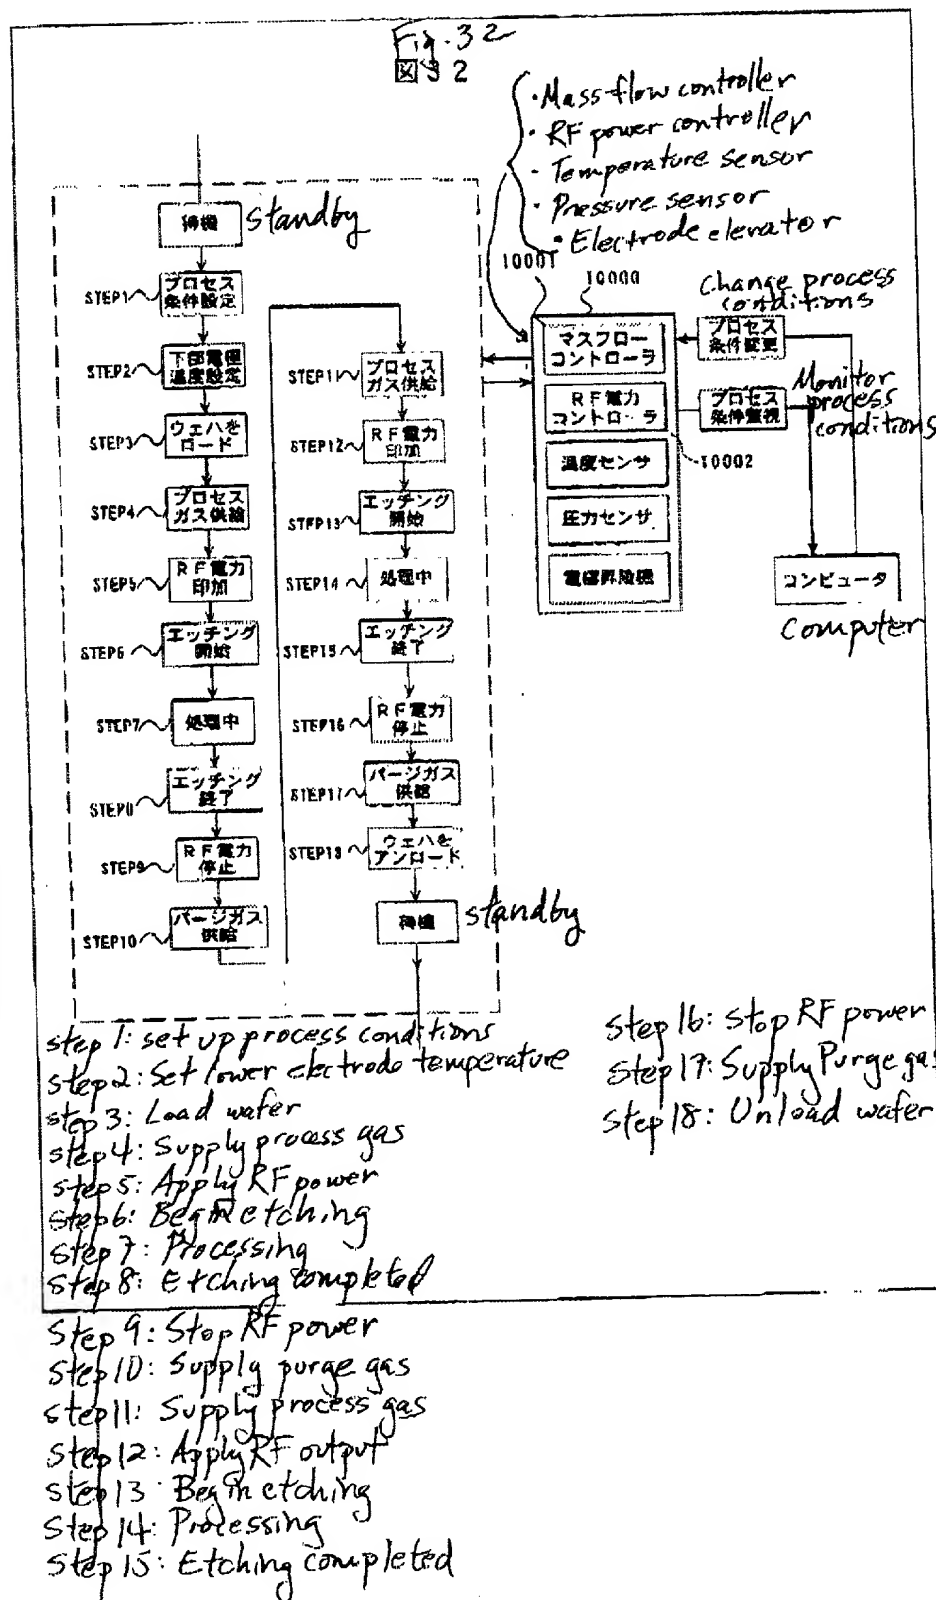 Fig. 32
図32
・Mass flow controller
・RF power controller
・Temperature sensor
・Pressure sensor
・Electrode elevator
待機
standby
STEP1
プロセス
条件設定
STEP2
下部電極
温度設定
STEP3
ウェハを
ロード
STEP4
プロセス
ガス供給
STEP5
RF電力
印加
STEP6
エッチング
開始
STEP7
処理中
STEP8
エッチング
終了
STEP9
RF電力
停止
STEP10
パージガス
供給
STEP11
プロセス
ガス供給
STEP12
RF電力
印加
STEP13
エッチング
開始
STEP14
処理中
STEP15
エッチング
終了
STEP16
RF電力
停止
STEP17
パージガス
供給
STEP18
ウェハを
アンロード
待機
standby
10001
10000
マスフロー
コントローラ
RF電力
コントローラ
温度センサ
圧力センサ
電極昇降機
10002
Change process
conditions
プロセス
条件変更
Monitor
process
conditions
プロセス
条件監視
コンピュータ
Computer
step 1: set up process conditions
step 2: Set lower electrode temperature
step 3: Load wafer
step 4: Supply process gas
step 5: Apply RF power
step 6: Begin etching
step 7: Processing
step 8: Etching completed
Step 9: Stop RF power
Step 10: Supply purge gas
step 11: Supply process gas
step 12: Apply RF output
step 13: Begin etching
step 14: Processing
step 15: Etching completed
step 16: Stop RF power
step 17: Supply Purge gas
step 18: Unload wafer